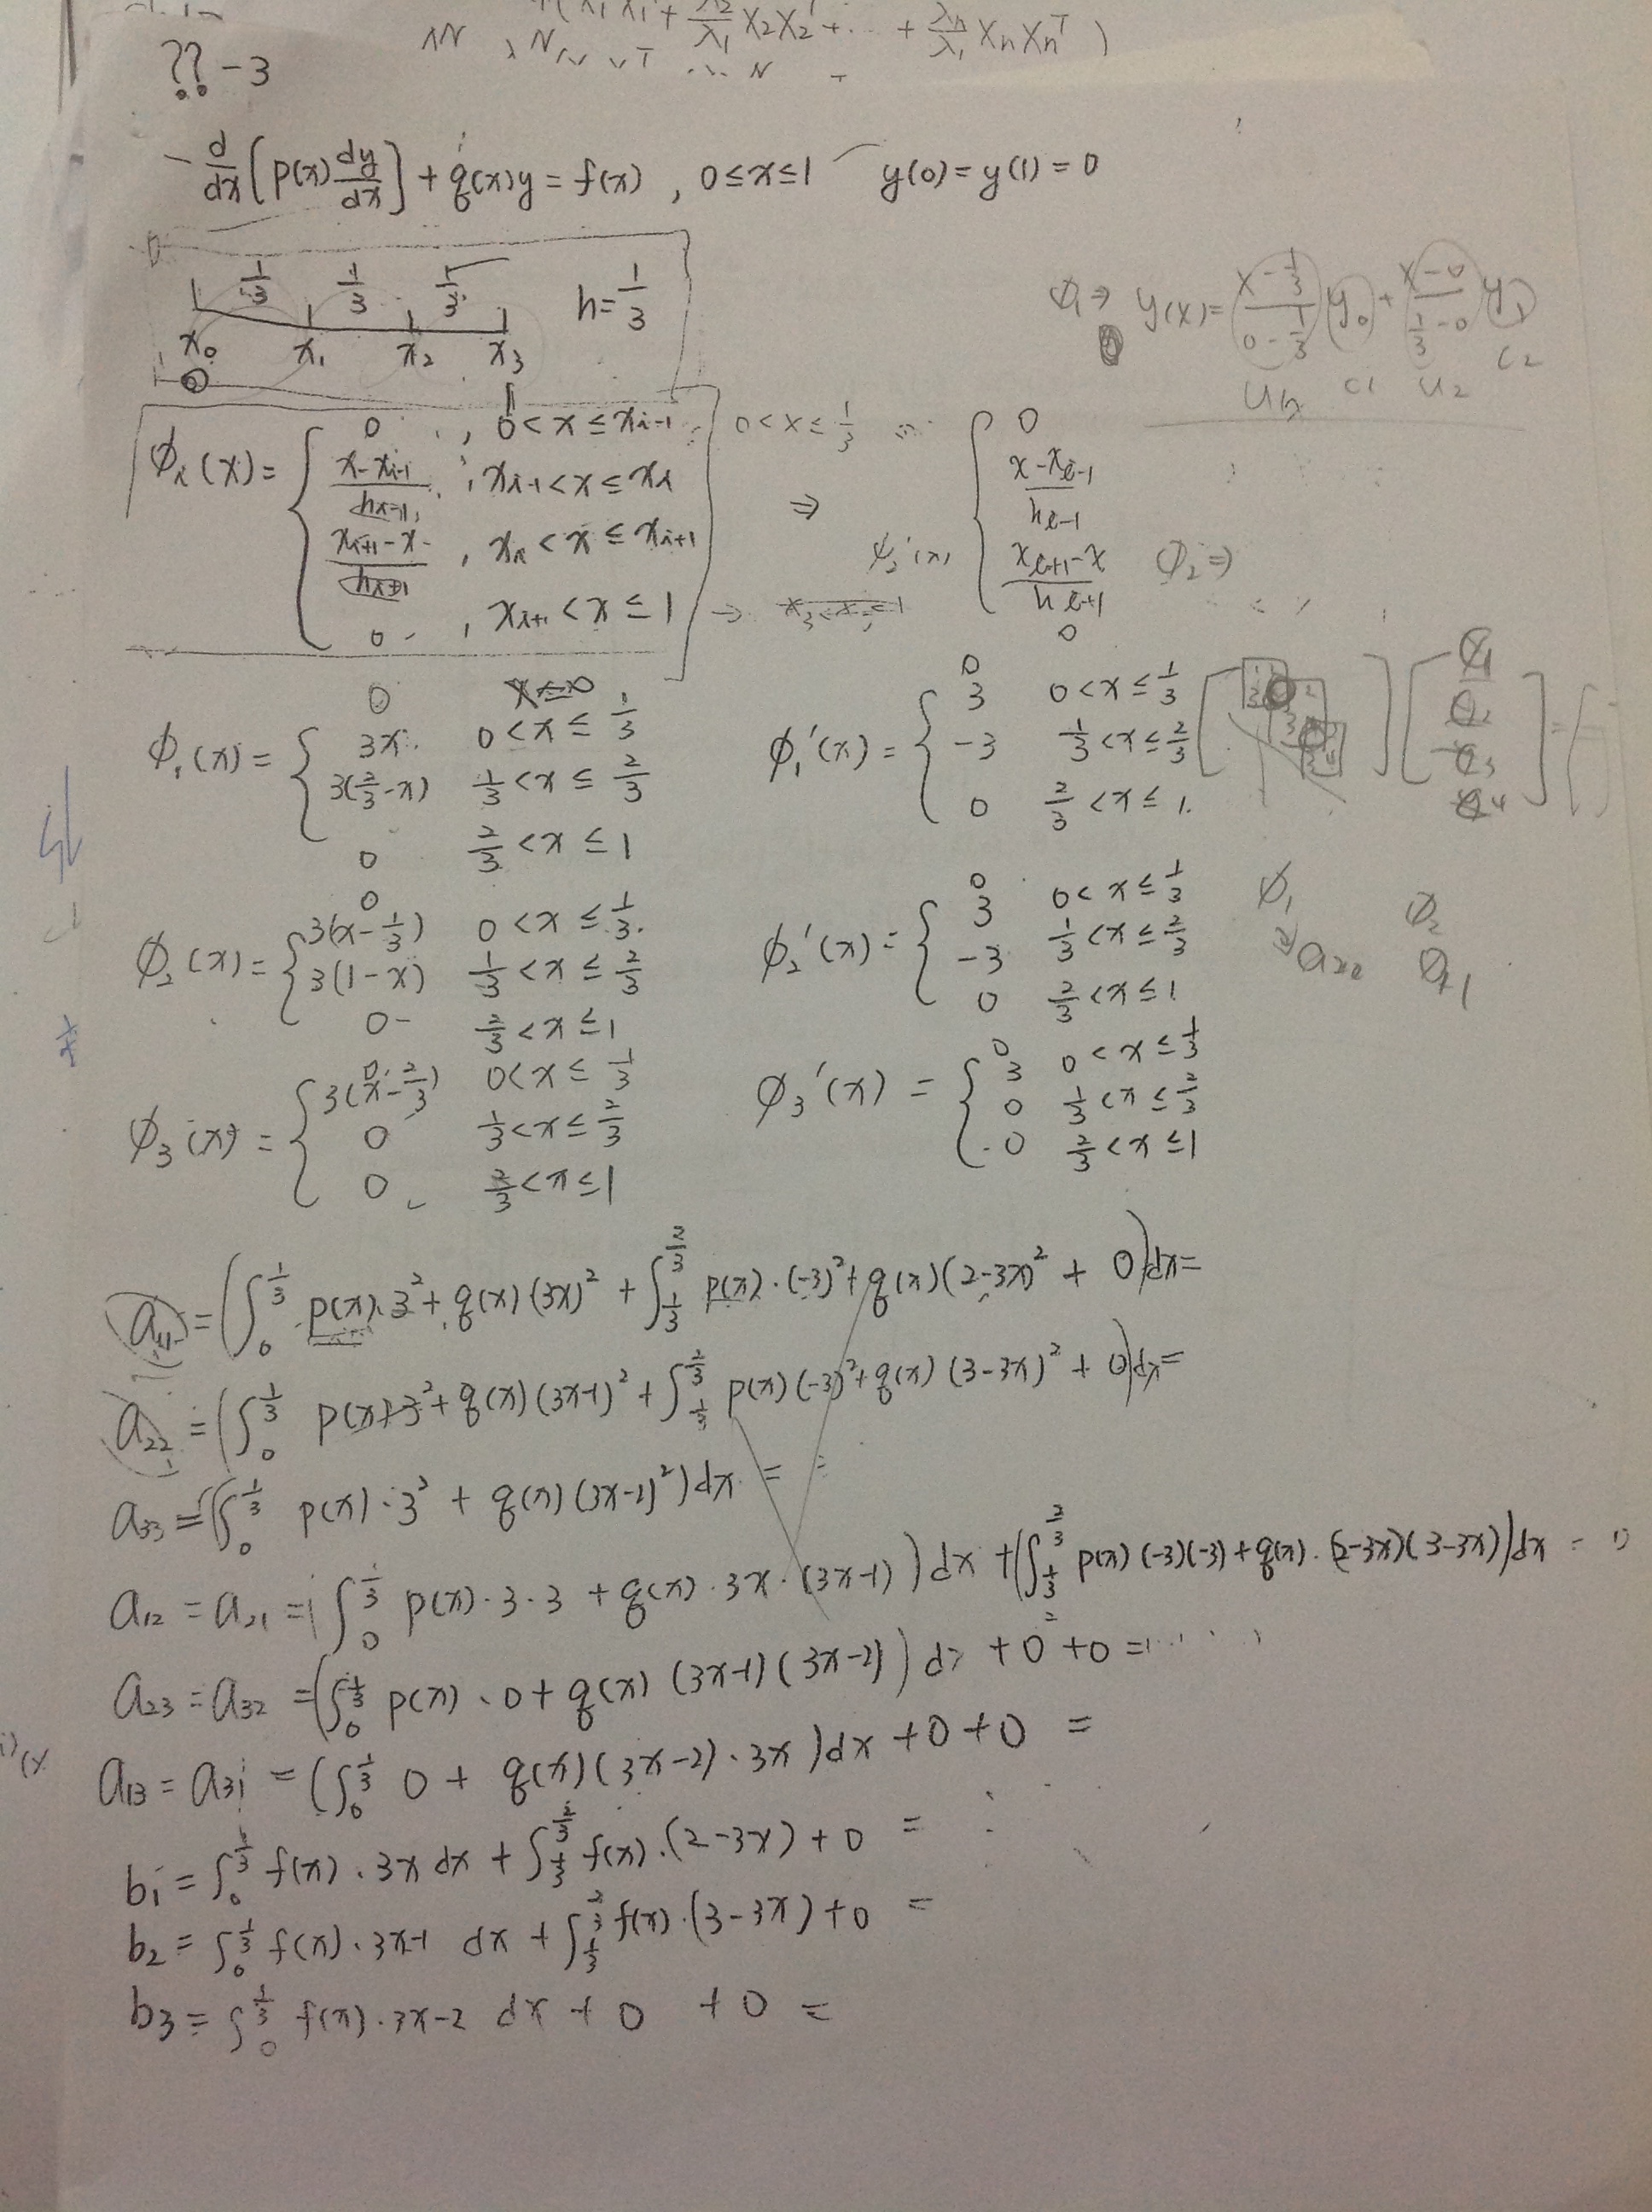 ?? - 3
- d/dx [p(x) dy/dx] + q(x)y = f(x) , 0≤x≤1 y(0) = y(1) = 0
1/3 1/3 1/3 h = 1/3
x₀ x₁ x₂ x₃
0
φ₁ ⇒ y(x) = (x - 1/3)/(0 - 1/3) y₀ + (x-0)/(1/3 - 0) y₁
c1 u2 c2
φᵢ(x) = { 0 , 0 < x ≤ xᵢ₋₁
(x - xᵢ₋₁)/hᵢ₋₁ , xᵢ₋₁ < x ≤ xᵢ
(xᵢ₊₁ - x)/hᵢ₊₁ , xᵢ < x ≤ xᵢ₊₁
0 , xᵢ₊₁ < x ≤ 1
0 < x ≤ 1/3
⇒ { 0
(x - xᵢ₋₁)/hᵢ₋₁
(xᵢ₊₁ - x)/hᵢ₊₁
0
φ₂ ⇒
φ₁(x) = { 0 x≤0
3x 0 < x ≤ 1/3
3(2/3 - x) 1/3 < x ≤ 2/3
0 2/3 < x ≤ 1
φ₁'(x) = { 0
3 0 < x ≤ 1/3
-3 1/3 < x ≤ 2/3
0 2/3 < x ≤ 1.
φ₂(x) = { 0
3(x - 1/3) 0 < x ≤ 1/3.
3(1 - x) 1/3 < x ≤ 2/3
0 2/3 < x ≤ 1
φ₂'(x) = { 0
3 0 < x ≤ 1/3
-3 1/3 < x ≤ 2/3
0 2/3 < x ≤ 1
φ₁ φ₂
φ₃(x) = { 0
3(x - 2/3) 0 < x ≤ 1/3
0 1/3 < x ≤ 2/3
0 2/3 < x ≤ 1
φ₃'(x) = { 0
3 0 < x ≤ 1/3
0 1/3 < x ≤ 2/3
0 2/3 < x ≤ 1
a₁₁ = (∫₀^{1/3} p(x)·3² + q(x)(3x)² + ∫_{1/3}^{2/3} p(x)·(-3)² + q(x)(2-3x)² + 0)dx =
a₂₂ = (∫₀^{1/3} p(x)·3² + q(x)(3x-1)² + ∫_{1/3}^{2/3} p(x)(-3)² + q(x)(3-3x)² + 0)dx =
a₃₃ = (∫₀^{1/3} p(x)·3² + q(x)(3x-2)²)dx = =
a₁₂ = a₂₁ = (∫₀^{1/3} p(x)·3·3 + q(x)·3x·(3x-1))dx + (∫_{1/3}^{2/3} p(x)(-3)(-3) + q(x)·(2-3x)(3-3x))dx =
a₂₃ = a₃₂ = (∫₀^{1/3} p(x)·0 + q(x)(3x-1)(3x-2))dx + 0 + 0 =
a₁₃ = a₃₁ = (∫₀^{1/3} 0 + q(x)(3x-2)·3x)dx + 0 + 0 =
b₁ = ∫₀^{1/3} f(x)·3x dx + ∫_{1/3}^{2/3} f(x)·(2-3x) + 0 =
b₂ = ∫₀^{1/3} f(x)·3x-1 dx + ∫_{1/3}^{2/3} f(x)·(3-3x) + 0 =
b₃ = ∫₀^{1/3} f(x)·3x-2 dx + 0 + 0 =